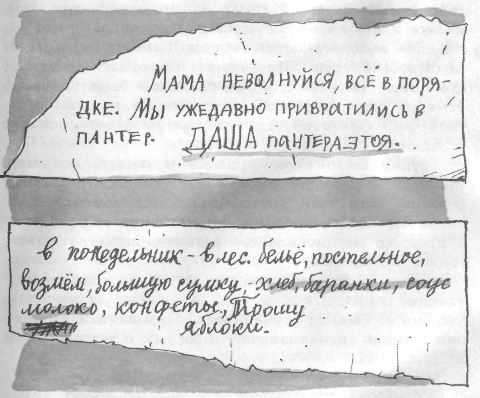 МАМА НЕВОЛНУЙСЯ, ВСЁ В ПОРЯ-
ДКЕ. МЫ УЖЕДАВНО ПРИВРАТИЛИСЬ В
ПАНТЕР. ДАША ПАНТЕРА ЭТОЯ.
в понедельник - в лес. бельё, постельное,
возмём, большую сумку, - хлеб, баранки, соус
молоко, конфеты, Трошу
яблоки.